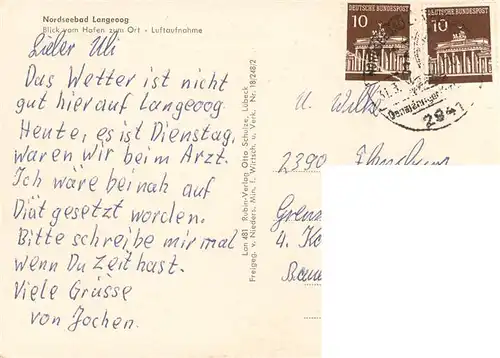 Nordseebad Langeoog
Blick vom Hafen zum Ort - Luftaufnahme
Lieber Uli
Das Wetter ist nicht
gut hier auf Langeoog.
Heute, es ist Dienstag,
waren wir beim Arzt.
Ich wäre beinah auf
Diät gesetzt worden.
Bitte schreibe mir mal
wenn Du Zeit hast.
Viele Grüsse
von Jochen.
Lan 481 Rubin-Verlag Otto Schulze, Lübeck
Freigeg. v. Nieders. Min. f. Wirtsch. u. Verk. Nr. 18/248/2
DEUTSCHE BUNDESPOST
10
DEUTSCHE BUNDESPOST
10
31.3.
2941
U. Wilke
2390
4.